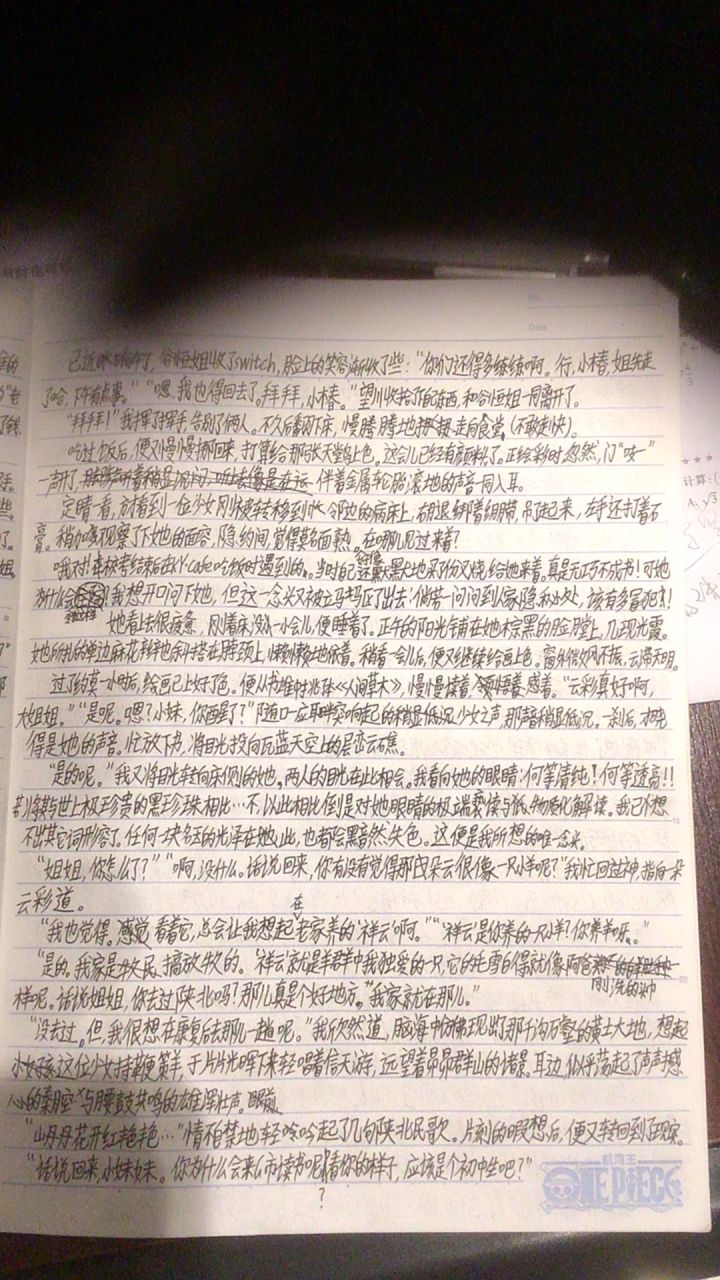 已近晌午了，谷恒姐收了switch，脸上的笑容渐收了些：“你们还得多练练啊。行，小椿，姐先走
了哈，下午有点事。”“嗯，我也得回去了。拜拜，小椿。”望川收拾了配东西，和谷恒姐一同离开了。
“拜拜！”我挥了挥手，告别了俩人。不久后翻下床，慢腾腾地走向食堂。(不敢走快)。
吃过饭后，便又慢慢挪回来，打算给那张天鹅上色。这会儿已经有颜料了。正绘彩时，忽然，门“吱—”
一声开了，伴着金属轮胎滚地的声音一同入耳。
定睛一看，方看到一位少女刚被转移到邻边的病床上，右腿绑着绷带，吊了起来，左手还打着石
膏。稍加观察了下她的面容，隐约间觉得莫名面熟。在哪儿见过来着？
哦对！当时自己还买份叉烧给她来着。真是无巧不成书！可她
为什么会这样？我想开口问下她，但这一念头又被立马打了出去：倘若一问问到人家隐私处，该有多冒犯！
她看上去很疲惫，刚着床没一小会儿便睡着了。正午的阳光铺在她棕黑的脸膛上，几现光霞。
她所扎的单边麻花辫也斜搭在脖颈上，懒懒地依着。稍看一会儿后，便又继续给画上色。窗外微风不振，云清天明。
过了约莫一小时后，绘画已上好了色。便从书堆中抽本《人间草木》，慢慢读着，领悟着，感着。“云彩真好啊，
大姐姐。”“是呢。嗯？小妹，你醒了？”随口一应耳畔突响起的稍显低沉少女之声，那声音稍显低沉。一刹后，才觉
得是她的声音。忙放下书，将目光投向瓦蓝天空上的层峦云礁。
“是的呢。”我又将目光转向床侧的她。两人的目光在此相会。我看向她的眼睛：何等清纯！何等透亮！！
若将其与世上极珍贵的黑珍珠相比…不，以此相比倒是对她眼睛的极端亵读与低俗物质化解读。我已不想
不出其它词形容了。任何一块玉的光泽在她此，也都会黯然失色。这便是我所想的唯一念头。
“姐姐，你怎么了？”“啊，没什么。话说回来，你有没有觉得那朵云很像一只小羊呢？”我忙回过神，指向一朵
云彩道。
“我也觉得。感觉看着它，总会让我想起在老家养的‘祥云’啊。”“‘祥云’是你养的一只小羊？你养羊呀。”
“是的。我家是牧民，搞放牧的。‘祥云’就是羊群中我独爱的一只，它的毛雪白得就像阿爸刚洗的
样呢。话说姐姐，你去过陕北吗？那儿真是个好地方。”我家就在那儿。”
“没去过。但，我很想在康复后去那儿一趟呢。”我欣然道，脑海中彷佛现出了那千沟万壑的黄土大地，想起
这位少女持鞭策羊，于片片光晖下轻唱着信天游，远望着昂昂群山的诸景。耳边，似乎荡起了声声感
心的秦腔与腰鼓共鸣的雄浑壮声。
“山丹丹花开红艳艳…”情不自禁地轻吟起了几句陕北民歌。片刻的暇想后，便又转回到了现实。
“话说回来，小妹妹。你为什么会来市读书呢？看你的样子，应该是个初中生吧？”
?
航海王
ONE PIECE
No.
Date
计算：